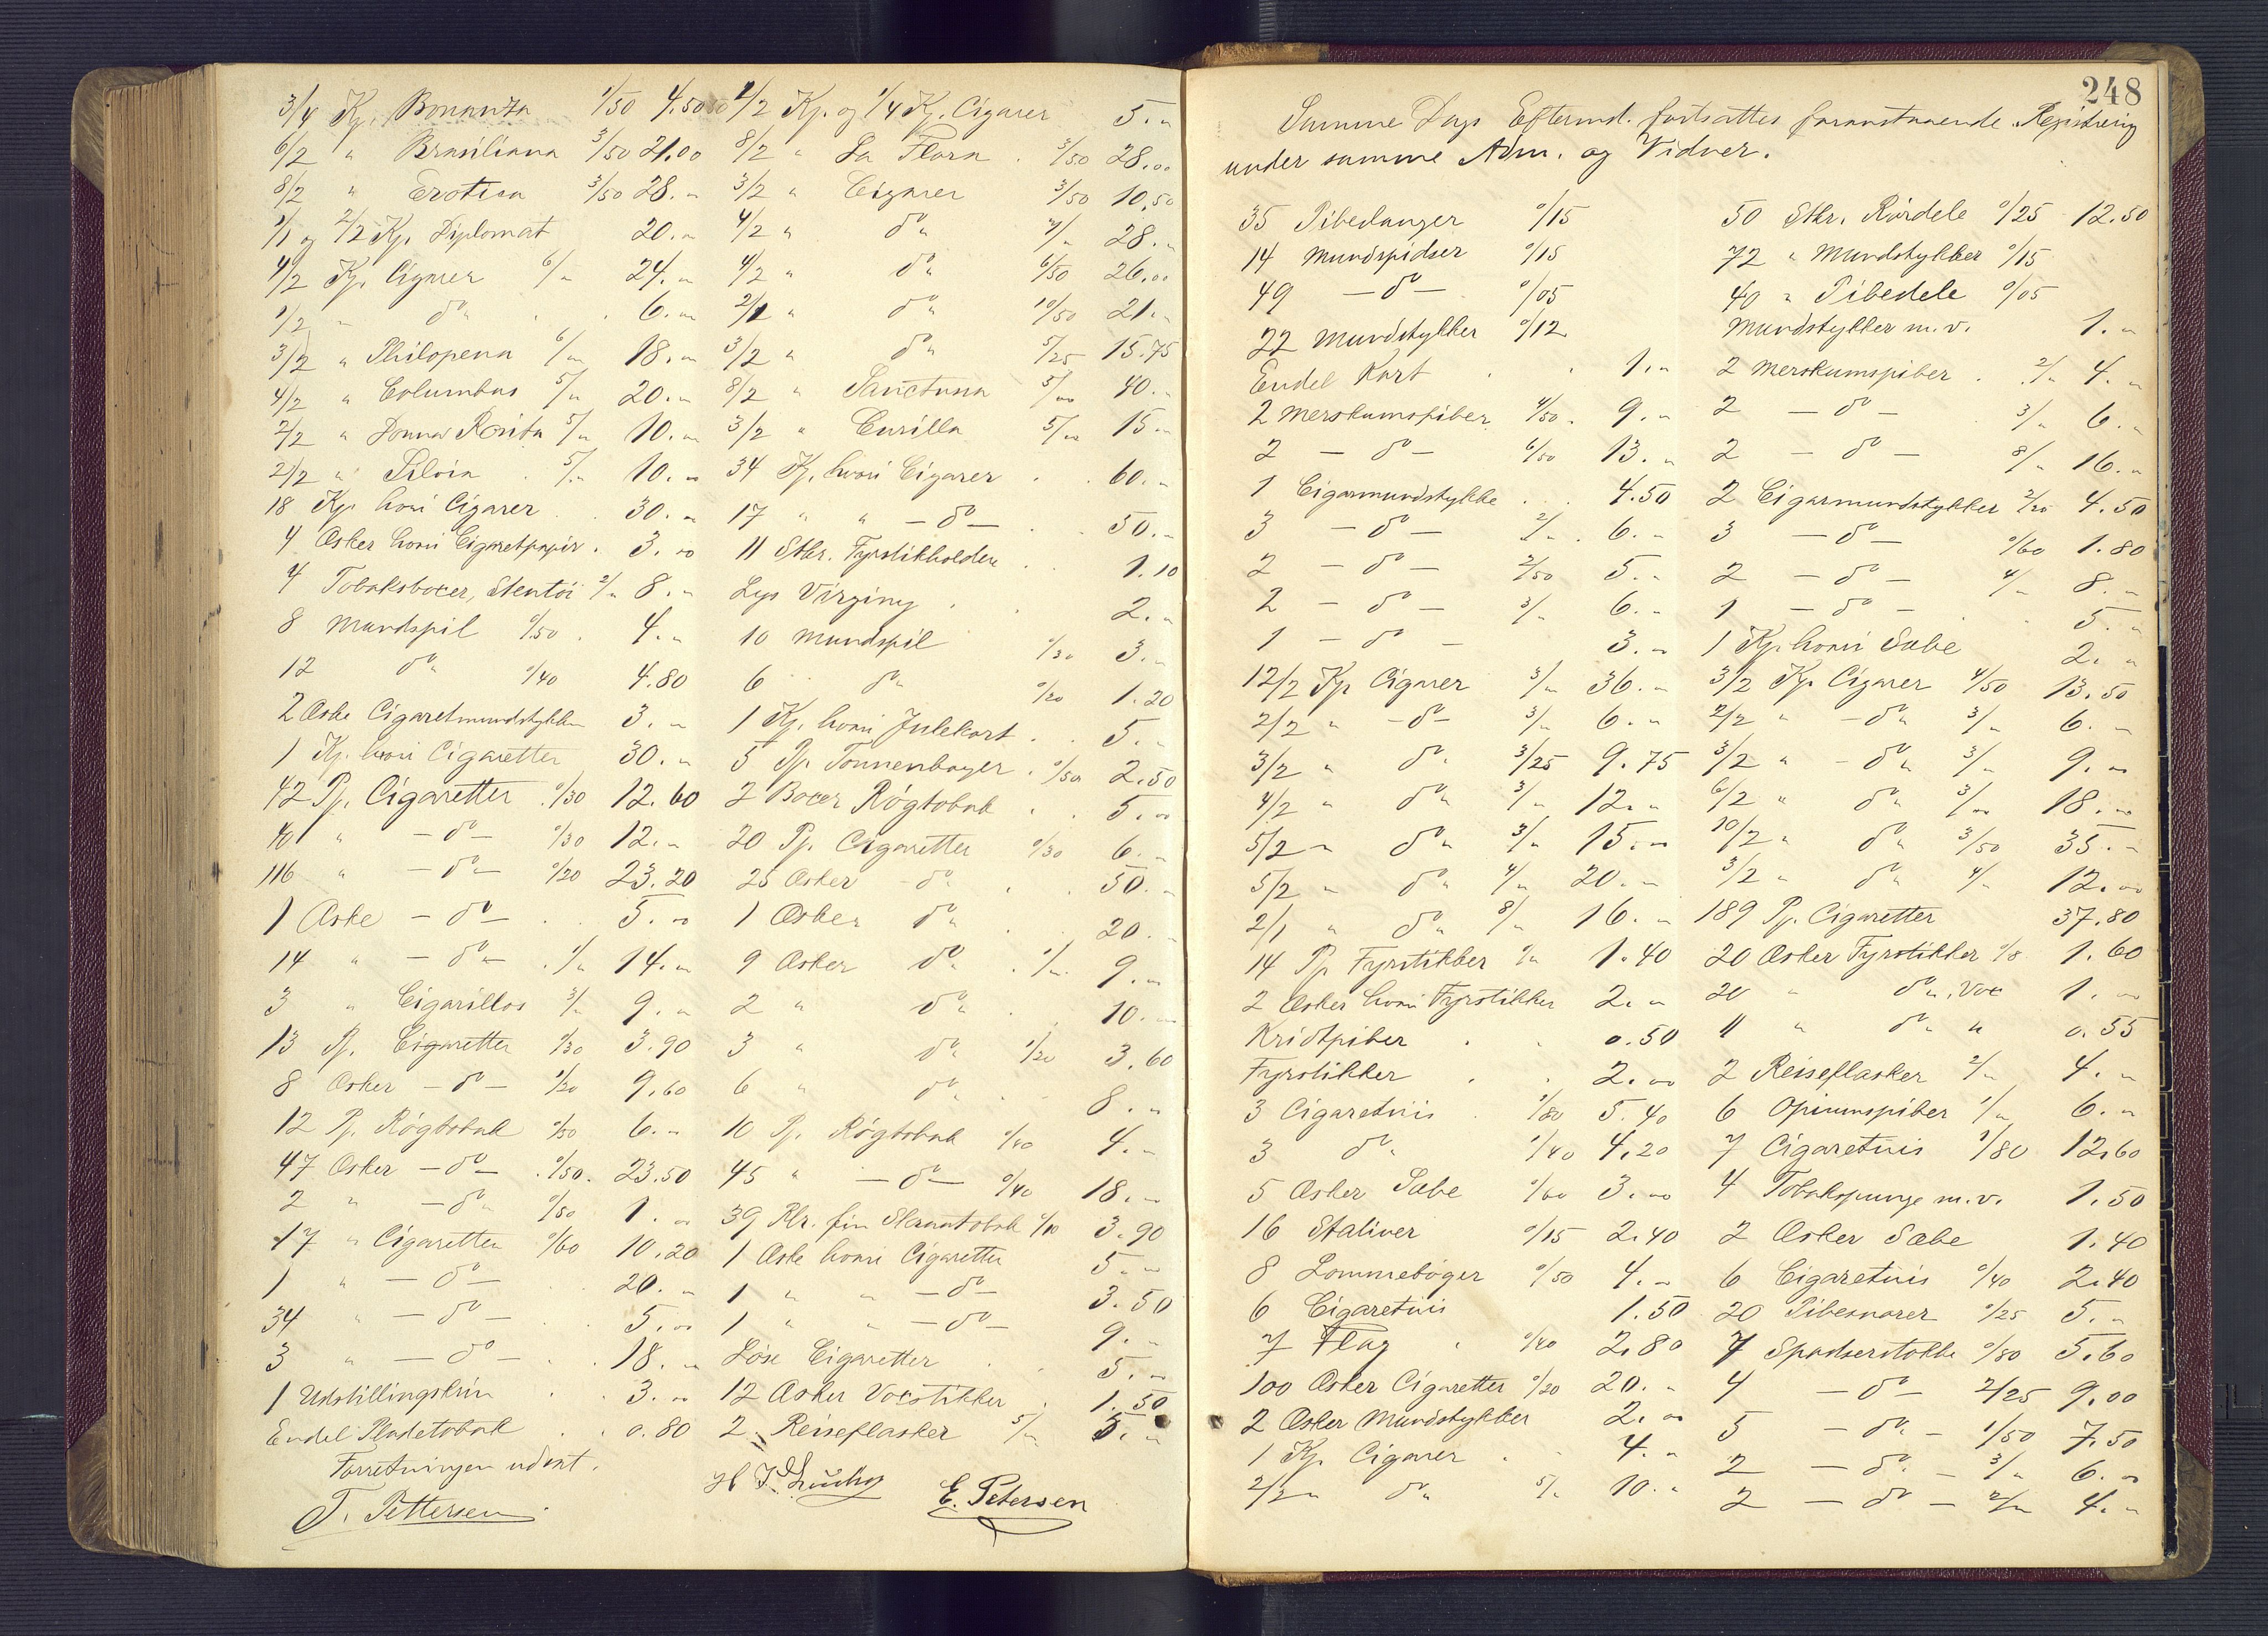 3/4 Kp. Bonanza 1/50 4.50
6/2 " Brasiliana 3/50 21.00
8/2 " Erotica 3/50 28."
1/1 og 2/2 Kp. Diplomat 20."
4/2 Kp. Cigarer 6/" 24."
1/2 " do " 6."
3/2 " Philopena 6/" 18."
4/2 " Columbus 5/" 20."
2/2 " Donna Rosita 5/" 10."
2/2 " Silvia 5/" 10."
18 Kp. hvori Cigarer 30."
4 Æsker hvori Cigaretpapir. 3."
4 Tobaksbocer, Stentöi 2/" 8."
8 Mundspil 0/50 4."
12 do " 0/40 4.80
2 Æske Cigaretmundstykker 3."
1 Kp. hvori Cigaretter 30."
42 Pp. Cigaretter 0/30 12.60
40 " — do — 0/30 12."
116 " — do — 0/20 23.20
1 Æske — do — 5."
14 " — do — 1/" 14."
3 " Cigarillos 3/" 9."
13 Pp. Cigaretter 0/30 3.90
8 Æsker — do — 1/20 9.60
12 Pp. Røgtobak 0/50 6."
47 Æsker — do — 0/50. 23.50
2 " — do — 0/50 1."
17 " Cigaretter 0/60 10.20
1 " — do — 20."
34 " — do — 5."
3 " — do — 18."
1 Udstillingskrin 3."
Endel Pladetobak 0.80
Forretningen udsat.
T. Pettersen
1/2 Kp. og 1/4 Kp. Cigarer 5."
8/2 " La Flora 3/50 28."
3/2 " Cigarer 3/50 10.50
4/2 " do " 7/" 28."
4/2 " do " 6/50 26."
2/1 " do " 10/50 21."
3/2 " do " 5/25 15.75
8/2 " Sanctuna 5/" 40."
3/2 " Cusilla 5/" 15."
34 Kp. hvori Cigarer 60."
17 " " — do — 50."
11 Stkr. Fyrstikholdere 1.10
Lys Virginy 2."
10 Mundspil 0/30 3."
6 do " 0/20 1.20
1 Kp. hvori Julekort 5."
5 Pp. Tonnenboyer 0/50 2.50
2 Bocer Røgtobak 5."
20 Pp. Cigaretter 0/30 6."
25 Æsker — do " 50."
1 Æsker do " 20."
9 Æsker do " 1/" 9."
2 " do " 10."
3 " do " 1/20 3.60
6 " do " 8."
10 Pp. Røgtobak 0/40 4."
45 " — do — 0/40 18."
39 Rlr. fin Skraatobak 0/10 3.90
1 Æske hvori Cigaretter 5."
1 " " — do — 3.50
1 " " — do — 9."
Løse Cigaretter 5."
12 Æsker Vocstikker 1.50
2 Reiseflasker 5/" 5."
E. Petersen
248
Samme Dags Eftermd. fortsattes foranstaaende Registrering
under samme Adm. og Vidner.
35 Pibeslanger 0/15
14 Mundspidser 0/15
49 — do — 0/05
22 Mundstykker 0/12
Endel Kort 1."
2 Merskumspiber 4/50. 9."
2 — do — 6/50 13."
1 Cigarmundstykke 4.50
3 — do — 2/" 6."
2 — do — 2/50 5."
2 — do — 3/" 6."
1 — do — 3."
12/2 Kp Cigarer 3/" 36."
2/2 " — do — 3/" 6."
3/2 " do " 3/25 9.75
4/2 " do " 3/" 12."
5/2 " do " 3/" 15."
5/2 " do " 4/" 20."
2/1 " do " 8/" 16."
14 Pp Fyrstikker 1.40
2 Æsker hvori Fyrstikker 2."
Kridtpiber 0.50
Fyrstikker 2."
3 Cigaretuis 1/80 5.40
3 do " 1/40 4.20
5 Æsker Sæbe 0/60 3."
16 Stativer 0/15 2.40
8 Lommebøger 0/50 4."
6 Cigaretuis 1.50
7 Flag 0/40 2.80
100 Æsker Cigaretter 0/20 20."
2 Æsker Mundstykker 2."
1 Kp. Cigarer 4."
2/2 " do " 5/" 10."
50 Stkr. Rördele 0/25 12.50
72 " Mundstykker 0/15
40 " Pibedele 0/05
Mundstykker m.v. 1."
2 Merskumspiber 2/" 4."
2 — do — 3/" 6."
2 — do — 8/" 16."
2 Cigarmundstykker 2/20 4.50
3 — do — 0/60 1.80
2 — do — 4/" 8."
1 — do — 5."
1 Kp. hvori Sæbe 2."
3/2 Kp. Cigarer 4/50 13.50
2/2 " — do " 3/" 6."
3/2 " — do " 3/" 9."
6/2 " do " 3/" 18."
10/2 " do " 3/50 35."
3/2 " do " 4/" 12."
189 Pp. Cigaretter 37.80
20 Æsker Fyrstikker 0/8 1.60
20 " do ", Voc 1."
11 " do " " 0.55
2 Reiseflasker 2/" 4."
6 Opiumspiber 1/" 6."
7 Cigaretuis 1/80 12.60
4 Tobakspunge m.v. 1.50
2 Æsker Sæbe 1.40
6 Cigaretuis 0/40 2.40
20 Pibesnorer 0/25 5."
7 Spadserstokke 0/80 5.60
4 — do — 2/25 9.00
5 — do " — 1/50 7.50
2 — do " — 3/" 6."
2 — do — 2/" 4."